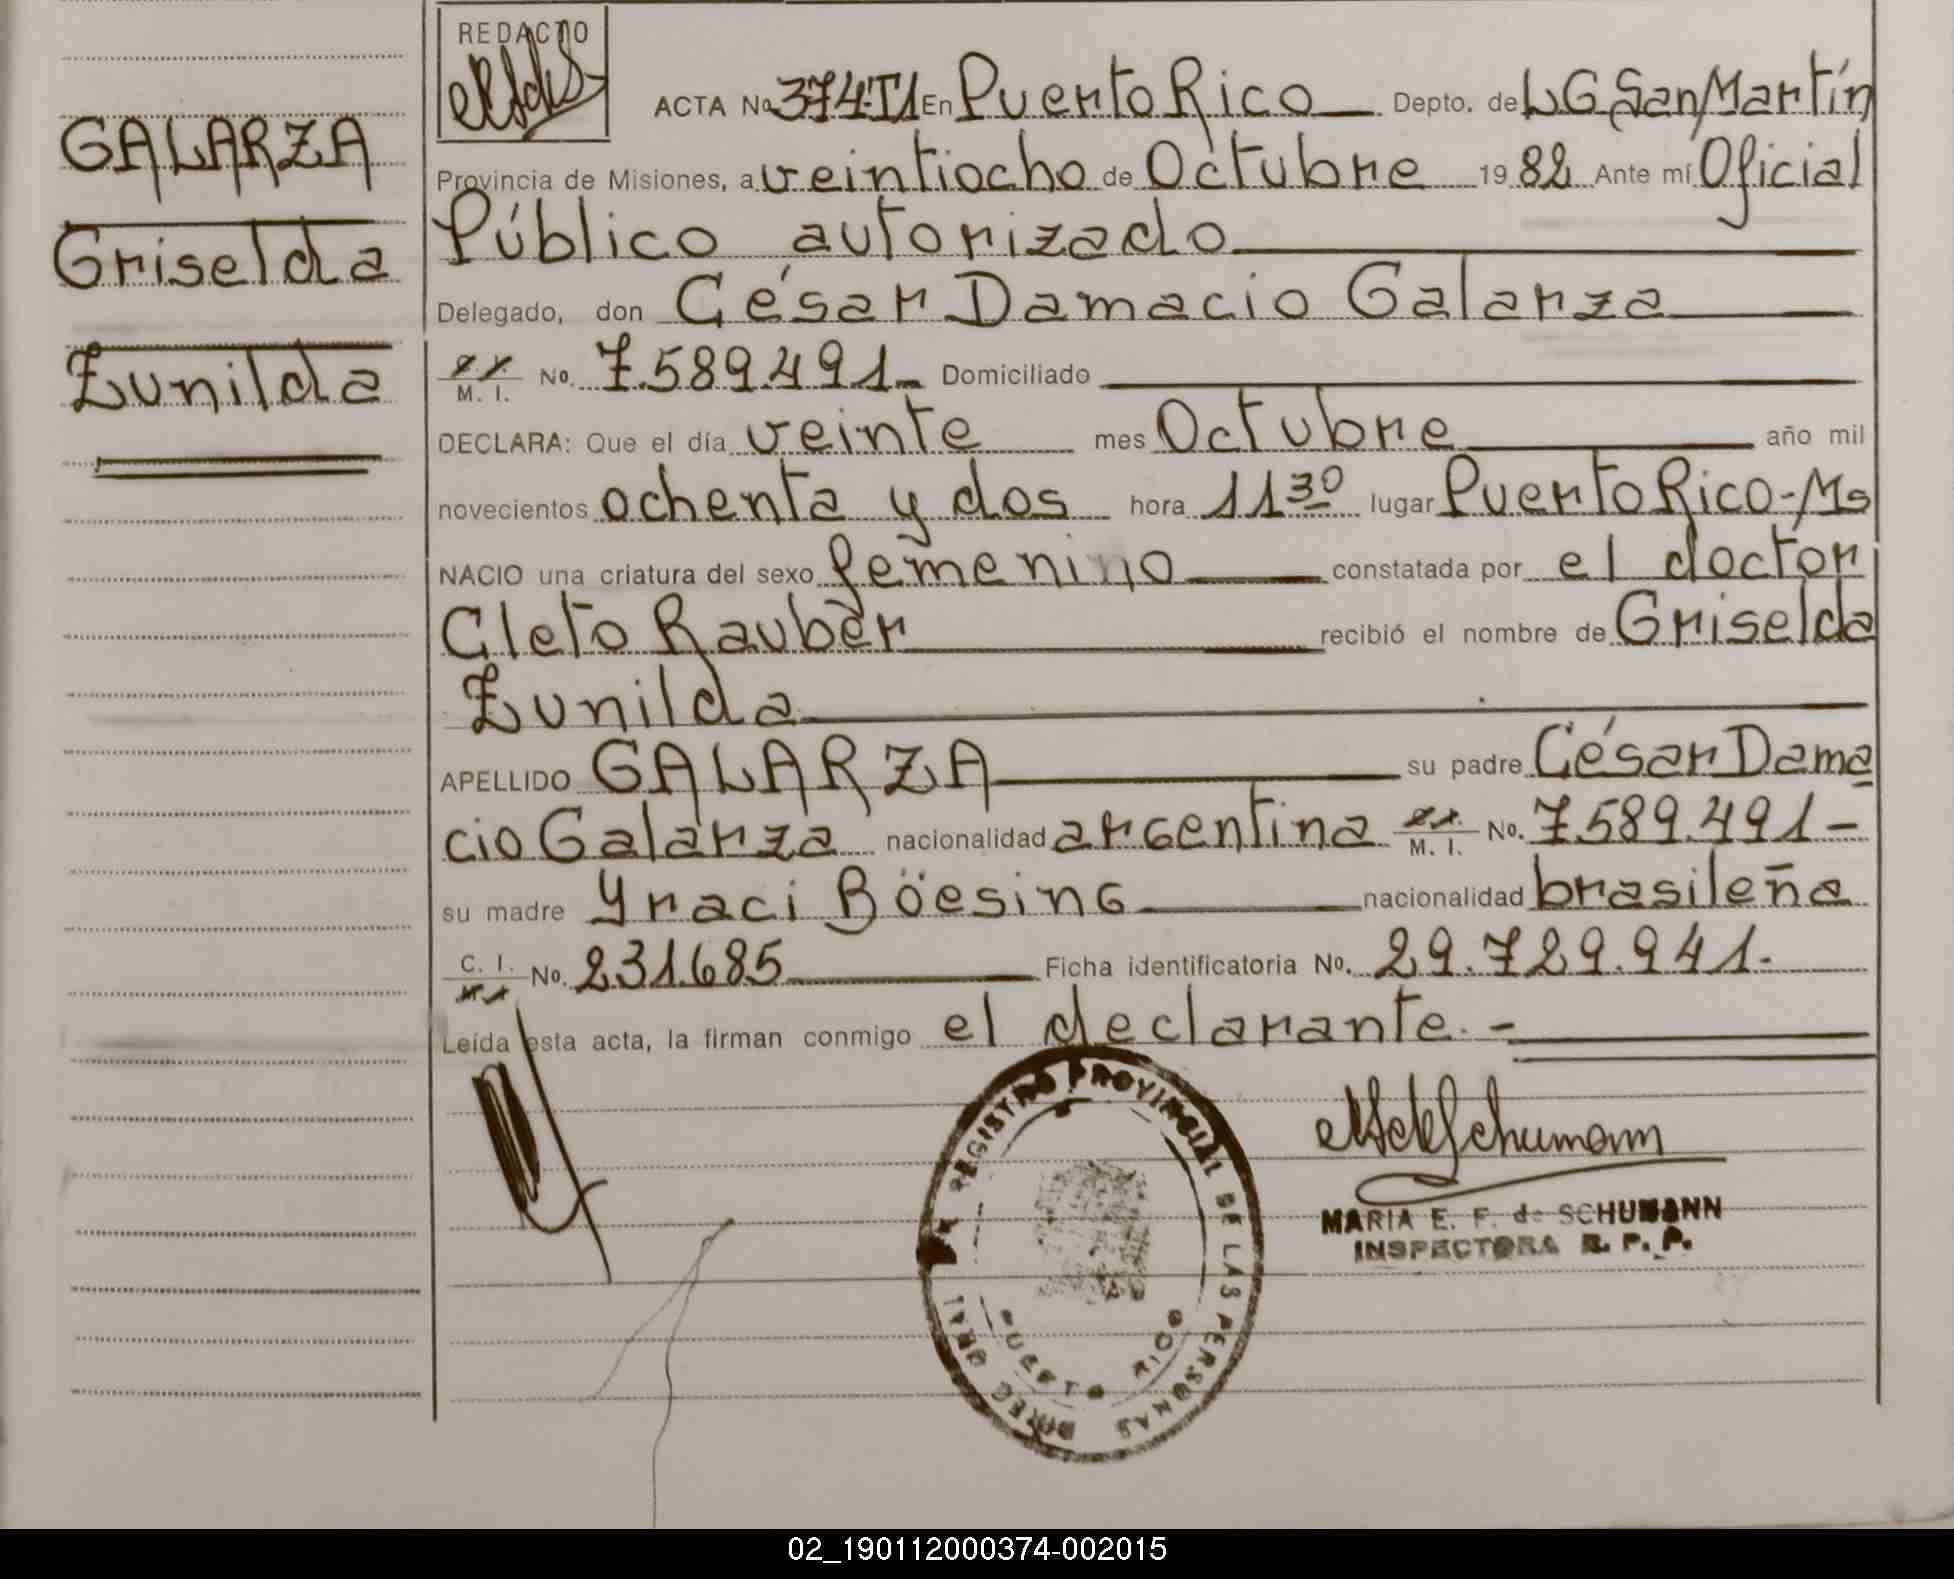 GALARZA
Griselda
Zunilda
REDACTO
ACTA No. 374-T1 En Puerto Rico Depto. de L G San Martín
Provincia de Misiones, a veintiocho de Octubre 19 82 Ante mí Oficial
Público autorizado
Delegado, don César Damacio Galarza
M. I. No. 7.589.491 Domiciliado
DECLARA: Que el día veinte mes Octubre año mil
novecientos ochenta y dos hora 11 30 lugar Puerto Rico-Ms
NACIO una criatura del sexo femenino constatada por el doctor
Cleto Rauber recibió el nombre de Griselda
Zunilda
APELLIDO GALARZA su padre César Dama
cio Galarza nacionalidad argentina M. I. No. 7.589.491-
su madre Yraci Böesing nacionalidad brasileña
C. I. No. 231.685 Ficha identificatoria No. 29.729.941.-
Leída esta acta, la firman conmigo el declarante.-
REGISTRO PROVINCIAL DE LAS PERSONAS
PUERTO RICO
MARIA E. F. de SCHUMANN
INSPECTORA R. P. P.
02_190112000374-002015